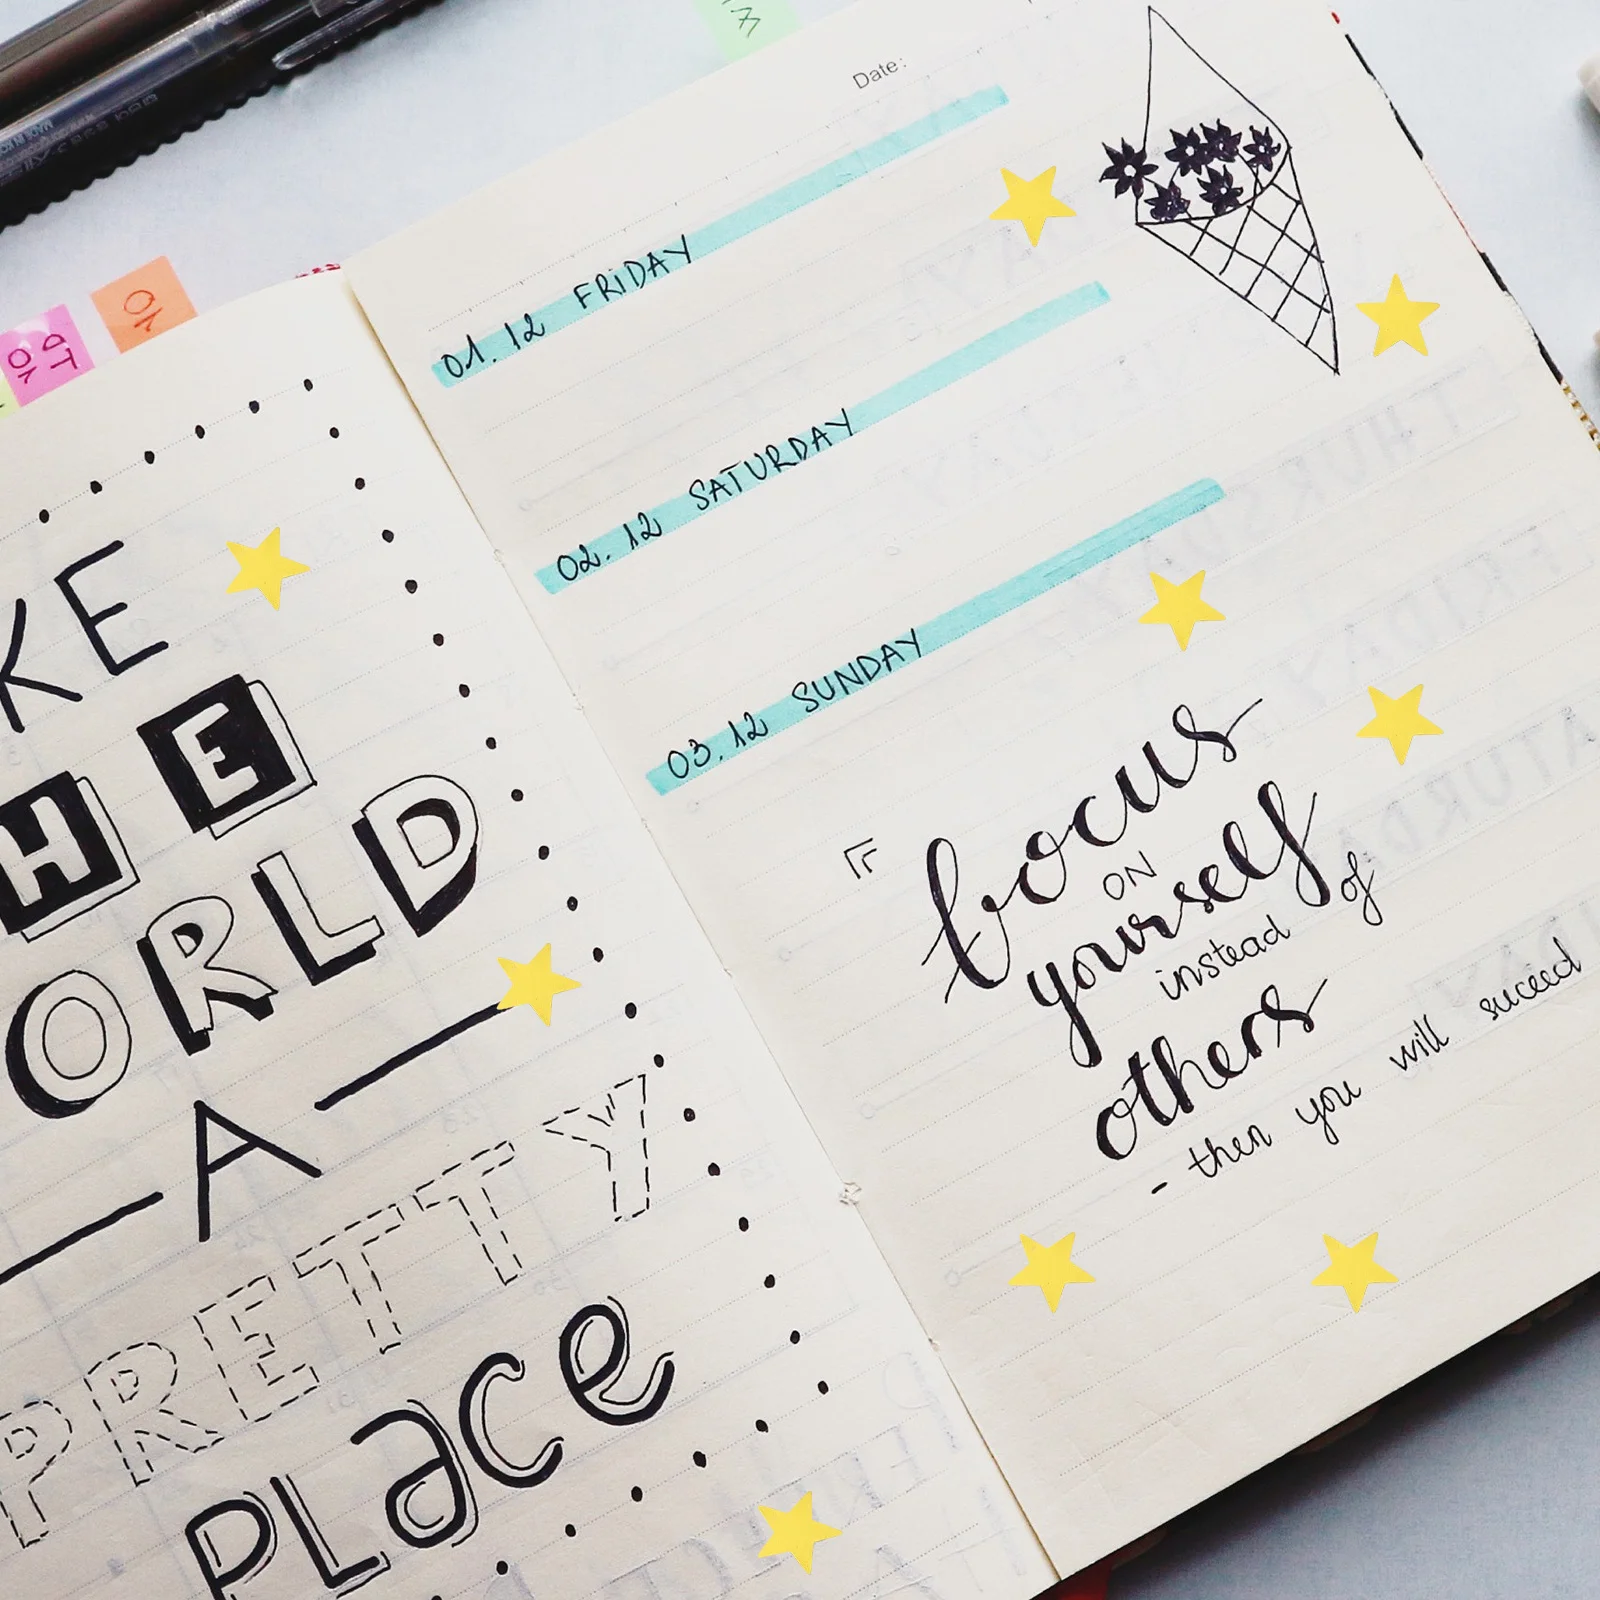 KE
HE
ORLD
A
PRETTY
PLace
Date:
01.12 FRIDAY
02.12 SATURDAY
03.12 SUNDAY
focus
ON
yourself
instead of
others
- then you will suceed